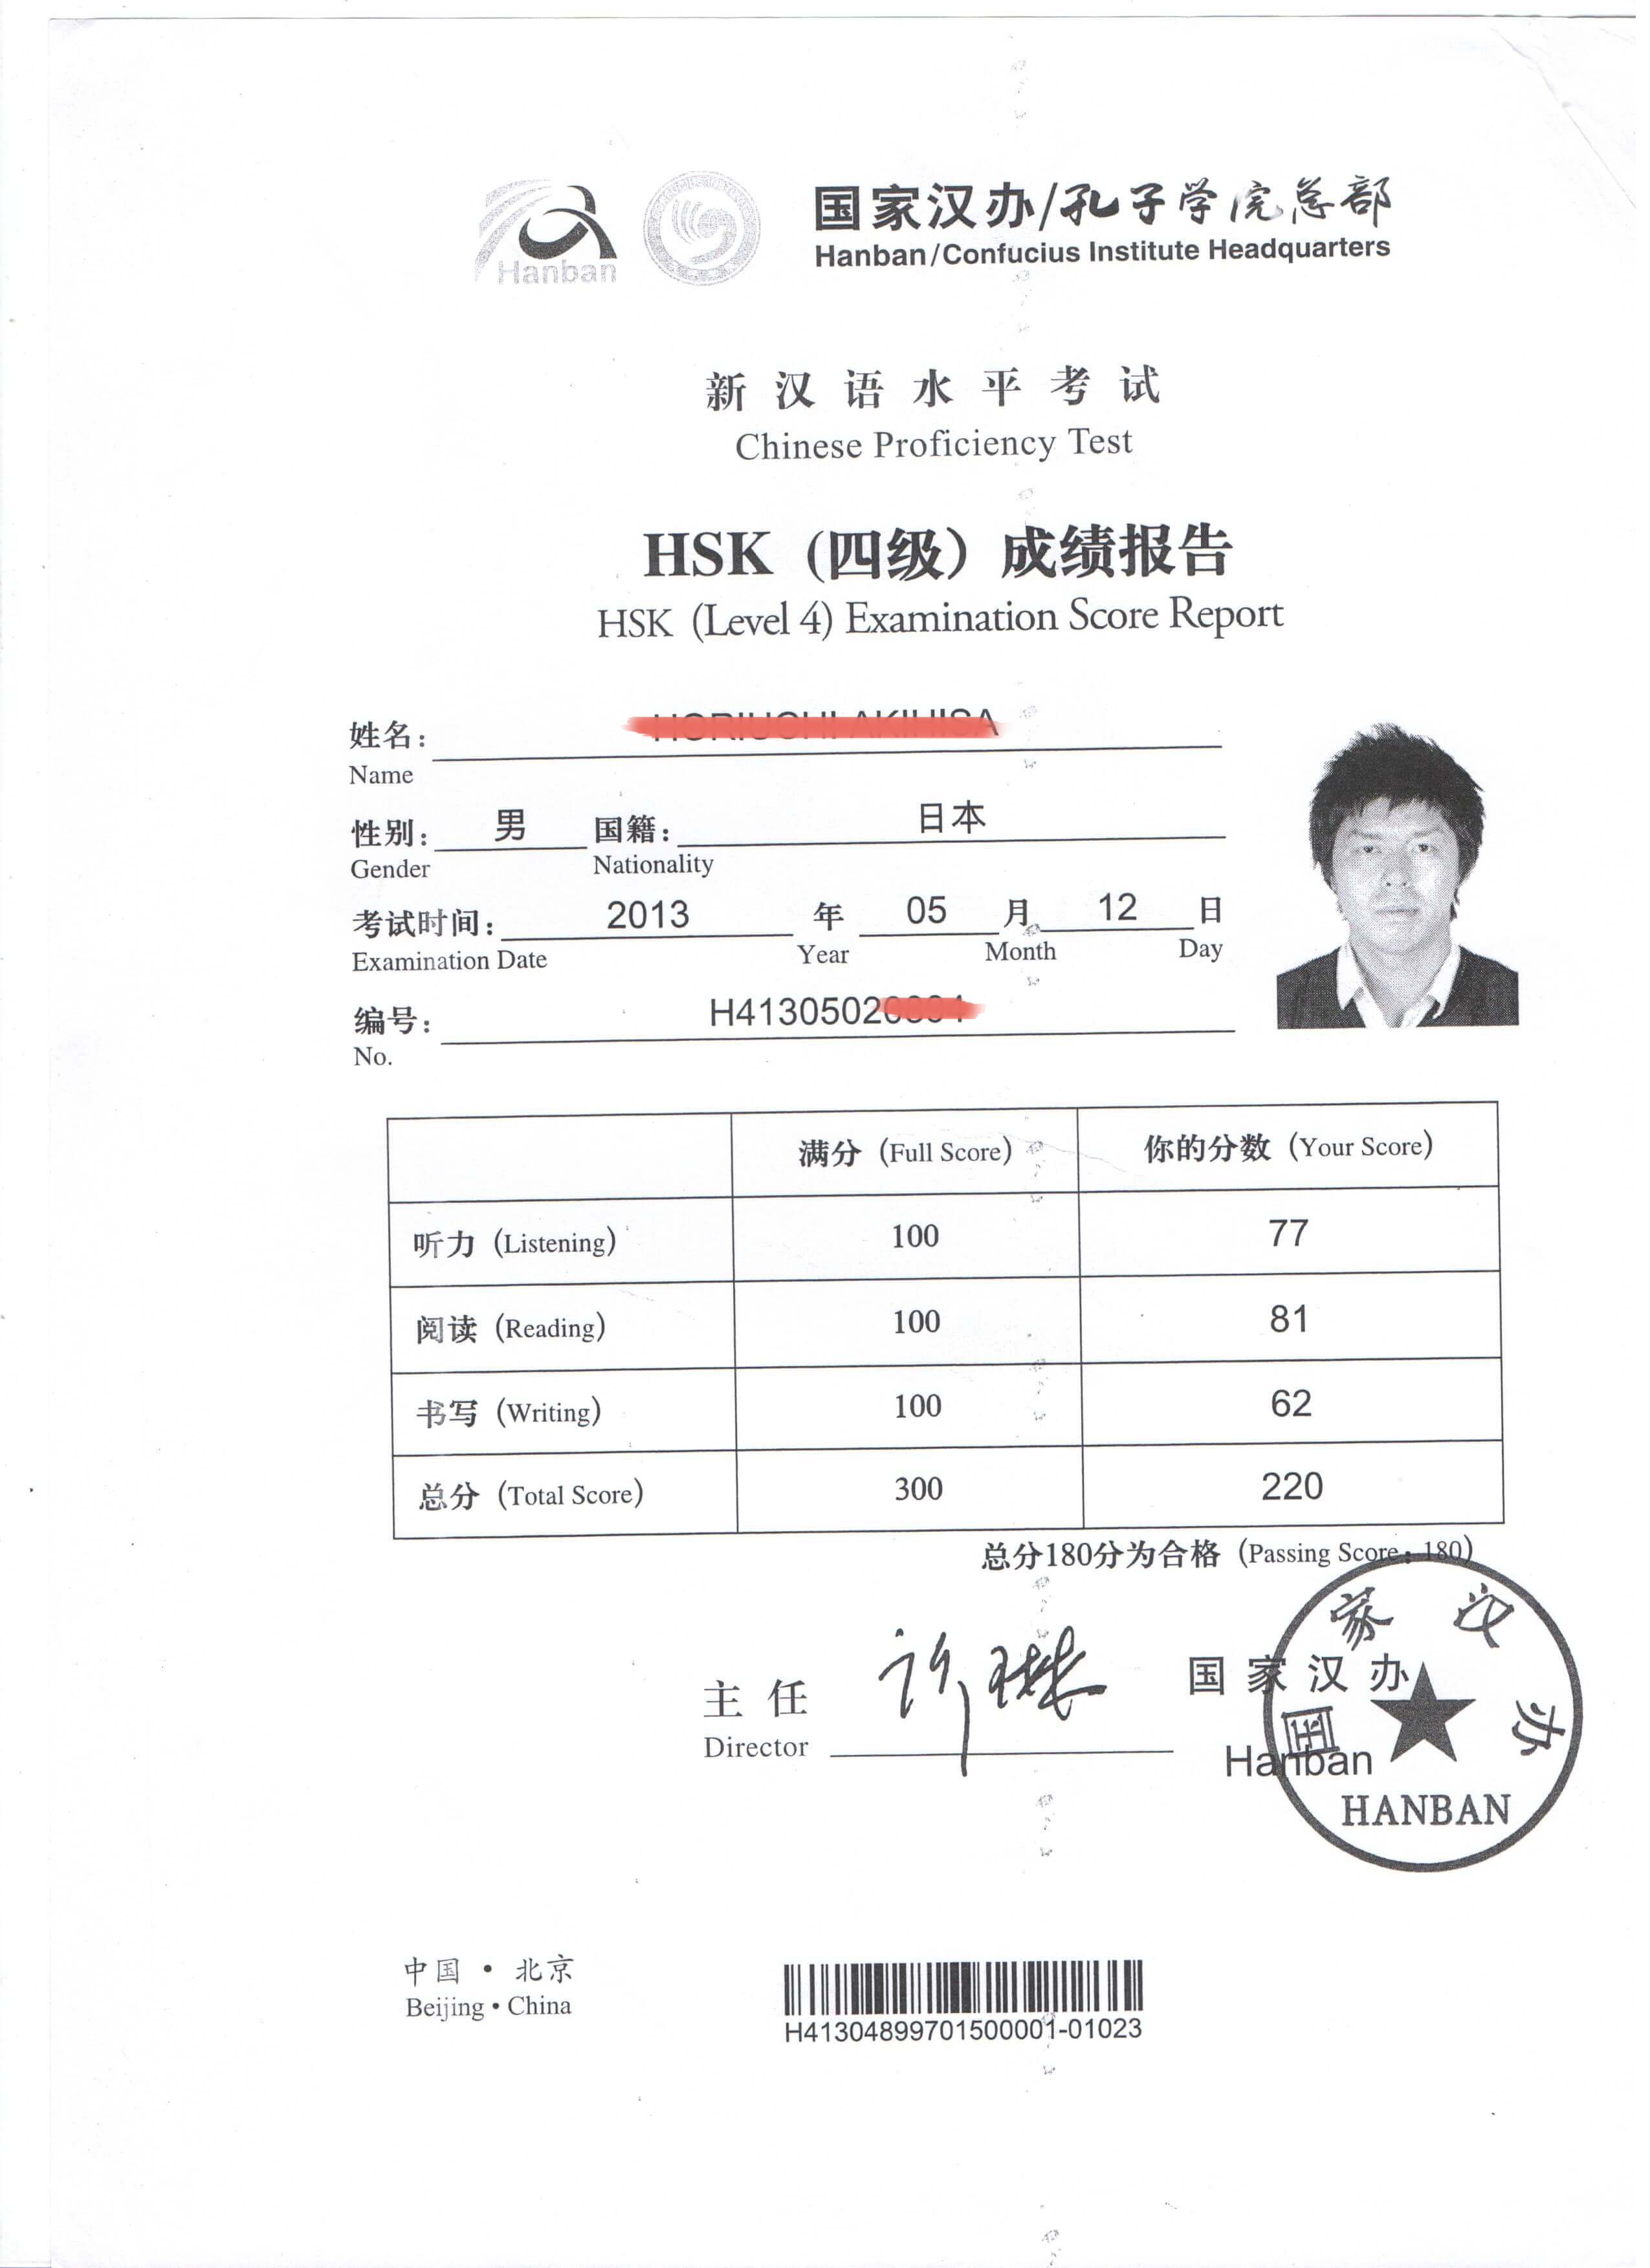 Hanban
国家汉办/孔子学院总部
Hanban/Confucius Institute Headquarters
新汉语水平考试
Chinese Proficiency Test
HSK（四级）成绩报告
HSK (Level 4) Examination Score Report
姓名：
Name
性别： 男 国籍： 日本
Gender Nationality
考试时间： 2013 年 05 月 12 日
Examination Date Year Month Day
编号： H4130502
No.
满分（Full Score） 你的分数（Your Score）
听力（Listening） 100 77
阅读（Reading） 100 81
书写（Writing） 100 62
总分（Total Score） 300 220
总分180分为合格（Passing Score: 180）
主任 许琳 国家汉办
Director Hanban
国家汉办
HANBAN
中国・北京
Beijing・China
H41304899701500001-01023